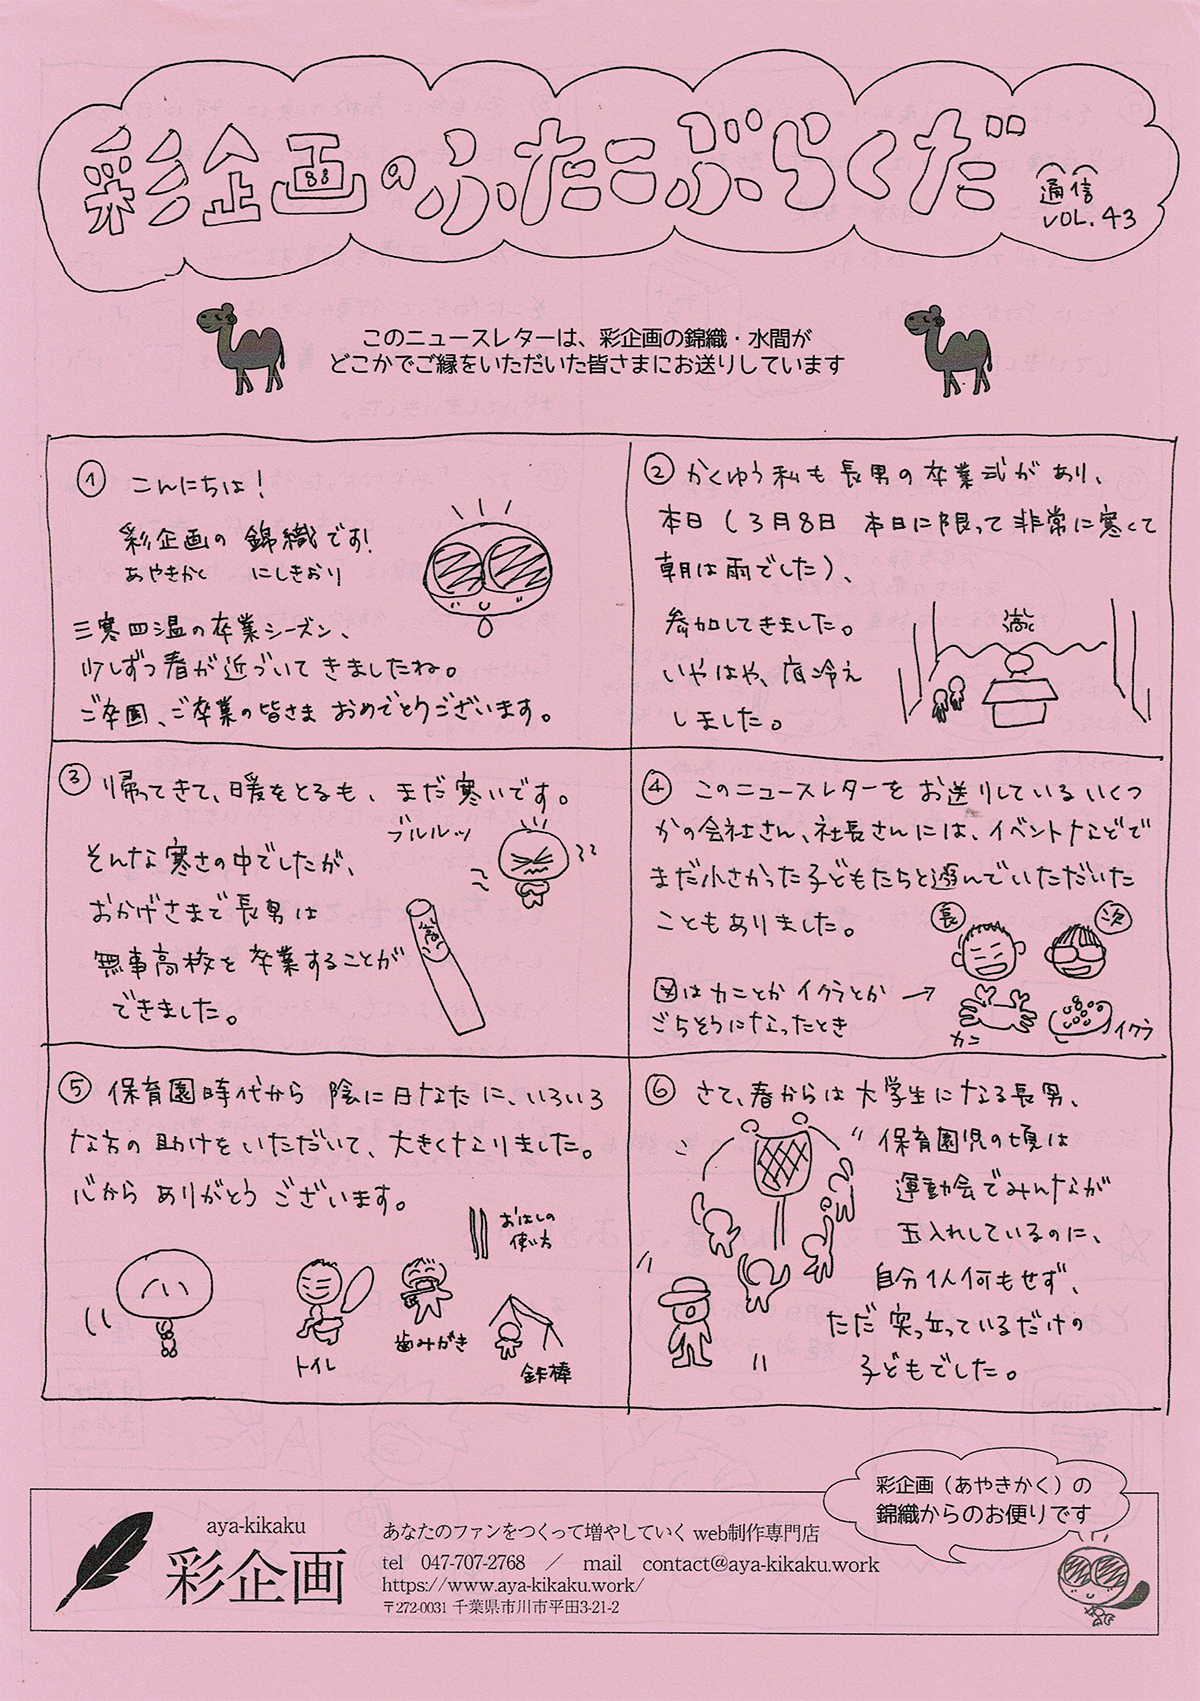 彩企画のふたこぶらくだ
通信
VOL.43
このニュースレターは、彩企画の錦織・水間が
どこかでご縁をいただいた皆さまにお送りしています
① こんにちは!
彩企画の 錦織です!
あやきかく にしきおり
三寒四温の卒業シーズン、
少しずつ春が近づいてきましたね。
ご卒園、ご卒業の皆さま おめでとうございます。
② かくゆう私も長男の卒業式があり、
本日(3月8日 本日に限って非常に寒くて
朝は雨でした)、
参加してきました。
いやはや、底冷え
しました。
③ 帰ってきて、暖をとるも、まだ寒いです。
ブルルッ
そんな寒さの中でしたが、
おかげさまで長男は
無事高校を卒業することが
できました。
④ このニュースレターをお送りしているいくつ
かの会社さん、社長さんには、イベントなどで
まだ小さかった子どもたちと遊んでいただいた
こともありました。
長
次
図はカニとかイクラとか →
ごちそうになったとき
カニ
イクラ
⑤ 保育園時代から 陰に日なたに、いろいろ
な方の助けをいただいて、大きくなりました。
心からありがとうございます。
おはしの
使い方
トイレ
歯みがき
鉄棒
⑥ さて、春からは大学生になる長男、
保育園児の頃は
運動会でみんなが
玉入れしているのに、
自分1人何もせず、
ただ突っ立っているだけの
子どもでした。
彩企画(あやきかく)の
錦織からのお便りです
aya-kikaku
彩企画
あなたのファンをつくって増やしていく web制作専門店
tel 047-707-2768 / mail contact@aya-kikaku.work
https://www.aya-kikaku.work/
〒272-0031 千葉県市川市平田3-21-2